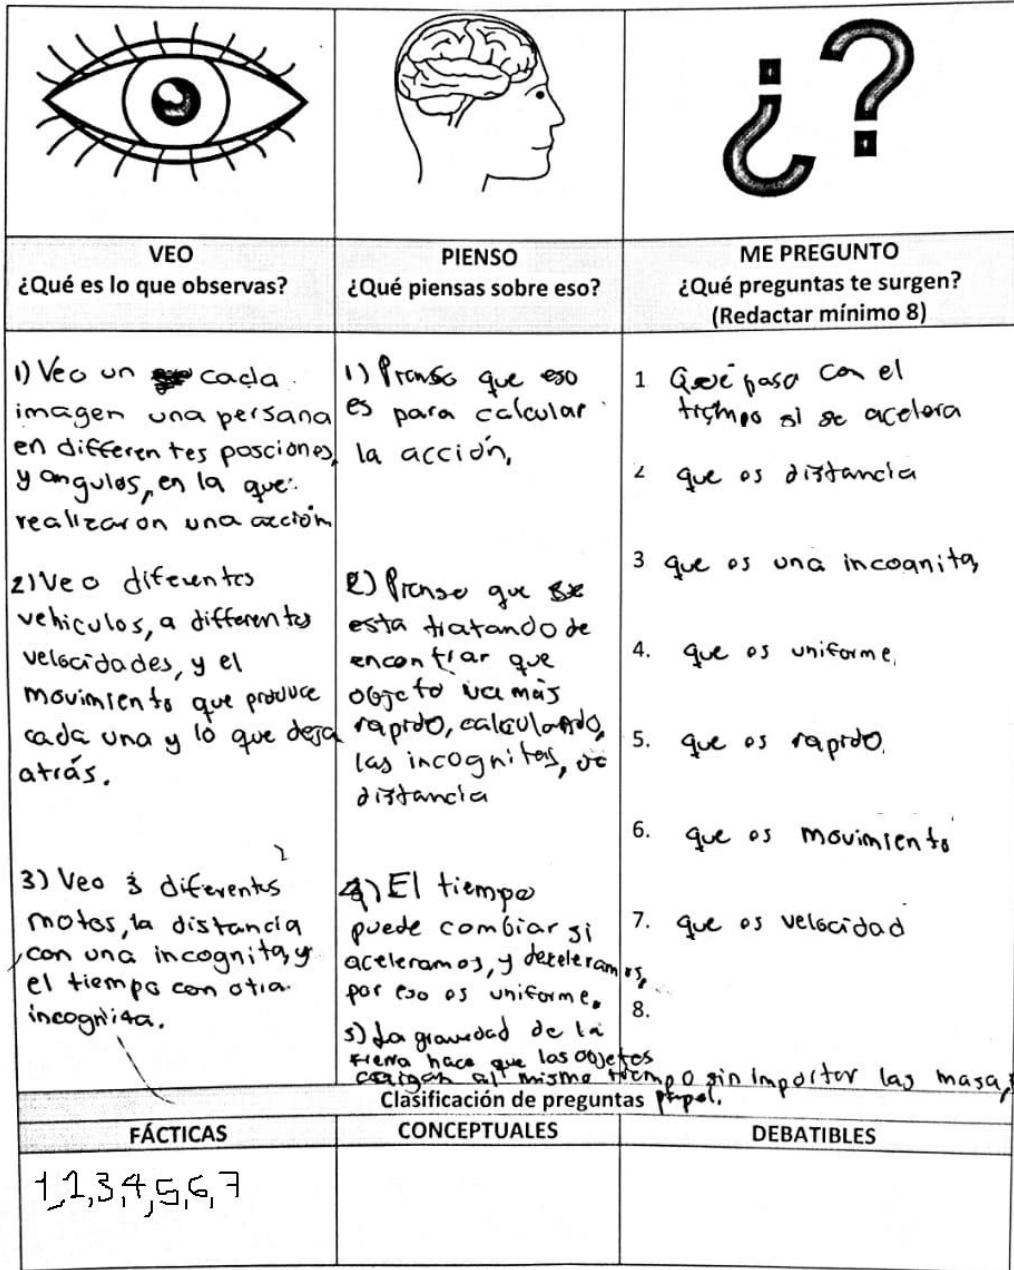 ¿?
VEO
¿Qué es lo que observas?
PIENSO
¿Qué piensas sobre eso?
ME PREGUNTO
¿Qué preguntas te surgen?
(Redactar mínimo 8)
1) Veo un cada
imagen una persana
en differen tes posciones,
y angulos, en la que
realizaron una acción
2) Veo difeuentes
vehiculos, a differentes
velocidades, y el
movimiento que produce
cada una y lo que deja
atrás.
3) Veo 3 diferentes
motos, la distancia
con una incognita, y
el tiempo con otra
incognita.
1) Pienso que eso
es para calcular
la acción,
2) Pienso que se
esta tratando de
encontrar que
objeto va más
rapido, calculando,
las incognitas, de
distancia
4) El tiempo
puede combiar si
aceleramos, y deceleramos,
por eso es uniforme.
5) La gravedad de la
tierra hace que los objetos
caigan al mismo tiempo sin importar las masa,
papel.
1 Qué pasa con el
tiempo si se acelera
2 que es distancia
3 que es una incognita,
4. que es uniforme,
5. que es rapido,
6. que es movimiento
7. que es velocidad
8.
Clasificación de preguntas
FÁCTICAS
CONCEPTUALES
DEBATIBLES
1,2,3,4,5,6,7